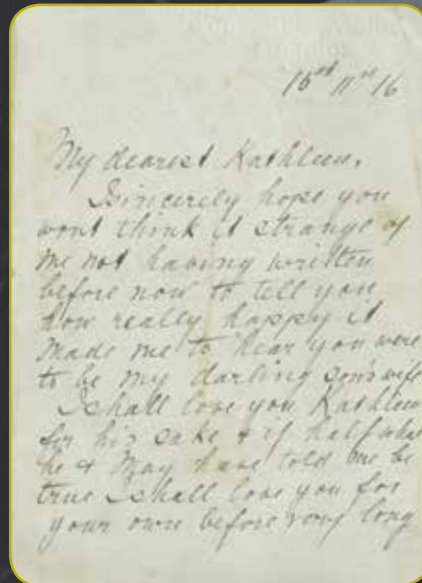 My dearest Kathleen,
I sincerely hope you
wont think it strange of
me not having written
before now to tell you
how really happy it
made me to hear you were
to be my darling son's wife
I shall love you Kathleen
for his sake & if half what
he & May have told me be
true I shall love you for
your own before very long